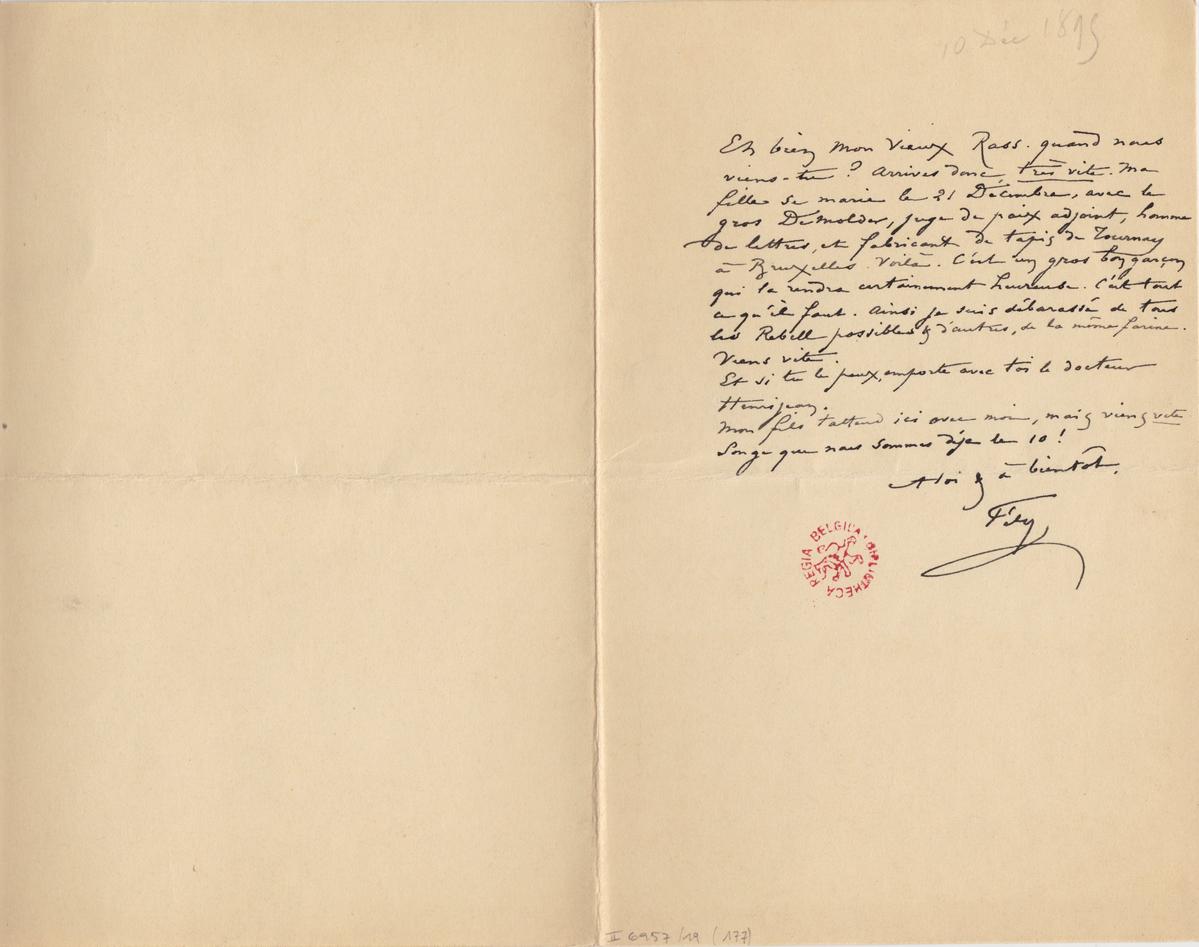 10 Déc 1895
Eh bien mon vieux Rass. quand nous
viens-tu ? Arrives donc, très vite. Ma
fille se marie le 21 Décembre, avec le
gros Demolder, juge de paix adjoint, homme
de lettres, et fabricant de tapis de Tournay
à Bruxelles. Voilà. C'est un gros bon garçon
qui la rendra certainement heureuse. C'est tout
ce qu'il faut. Ainsi je suis débarassé de tous
les Rebell possibles & d'autres, de la même farine.
Viens vite.
Et si tu le peux, emporte avec toi le docteur
Henrijean.
Mon fils t'attend ici avec moi, mais viens vite
Songe que nous sommes déja le 10 !
A toi & à bientôt.
Fély
REGIA BELGICA BIBLIOTHECA
II 6957 /19 (177)